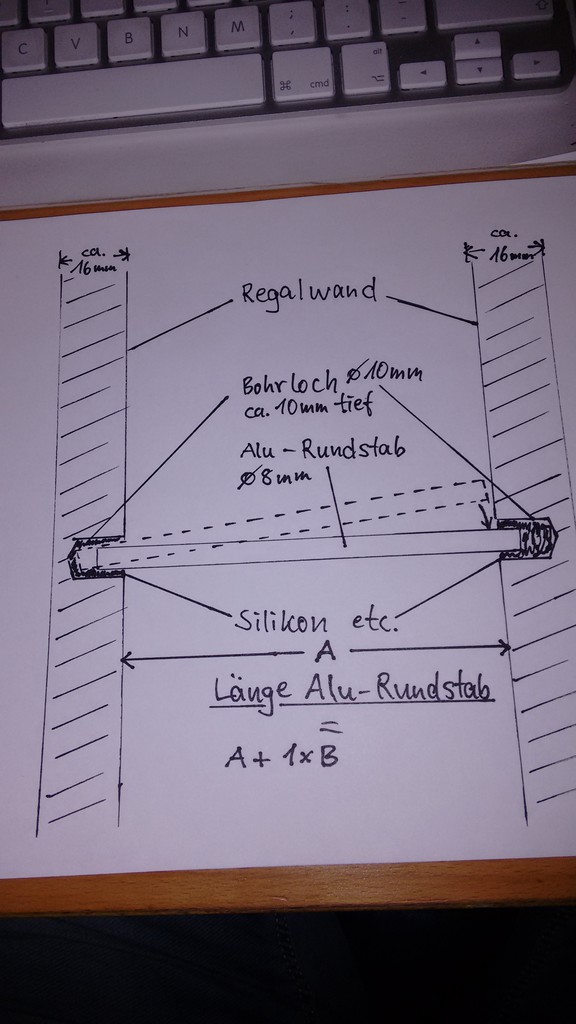 C V B N M ; : _ -
, .
⌘ cmd alt ⌥
◄ ▲ ▼ ►
ca. 16mm
ca. 16mm
Regalwand
Bohrloch ø10mm
ca. 10mm tief
Alu-Rundstab
ø8mm
Silikon etc.
A
Länge Alu-Rundstab
=
A + 1xB